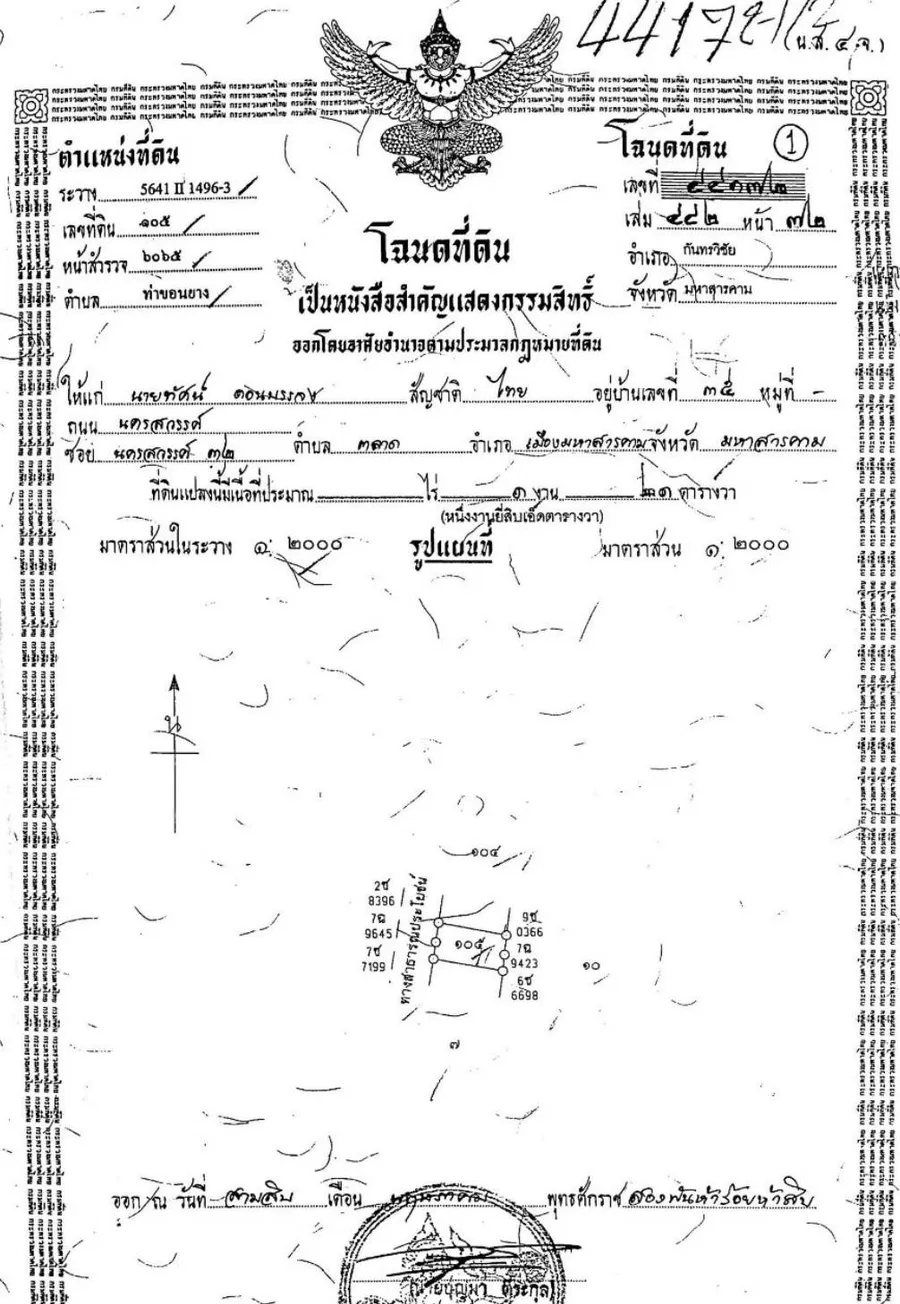 (น.ส. ๔ จ.)
ตำแหน่งที่ดิน
ระวาง 5641 II 1496-3
เลขที่ดิน ๑๐๕
หน้าสำรวจ ๖๐๖๕
ตำบล ท่าขอนยาง
โฉนดที่ดิน
เลขที่ ๔๔๑๗๒
เล่ม ๔๔๒ หน้า ๗๒
อำเภอ กันทรวิชัย
จังหวัด มหาสารคาม
①
โฉนดที่ดิน
เป็นหนังสือสำคัญแสดงกรรมสิทธิ์
ออกโดยอาศัยอำนาจตามประมวลกฎหมายที่ดิน
ให้แก่ นายทัศน์ สัญชาติ ไทย อยู่บ้านเลขที่ ๓๕ หมู่ที่ -
ถนน นครสวรรค์
ซอย นครสวรรค์ ๓๒ ตำบล ตลาด อำเภอ เมืองมหาสารคาม จังหวัด มหาสารคาม
ที่ดินแปลงนี้มีเนื้อที่ประมาณ ไร่ ๑ งาน ๒๑ ตารางวา
(หนึ่งงานยี่สิบเอ็ดตารางวา)
มาตราส่วนในระวาง ๑: ๒๐๐๐ รูปแผนที่ มาตราส่วน ๑: ๒๐๐๐
น
๑๐๔
2ช
8396
7ฉ
9645
7ช
7199
ทางสาธารณประโยชน์
๑๐๕
9ช
0366
7ฉ
9423
6ช
6698
๑๐
๗
ออก ณ วันที่ สามสิบ เดือน พฤษภาคม พุทธศักราช สองพันห้าร้อยห้าสิบ